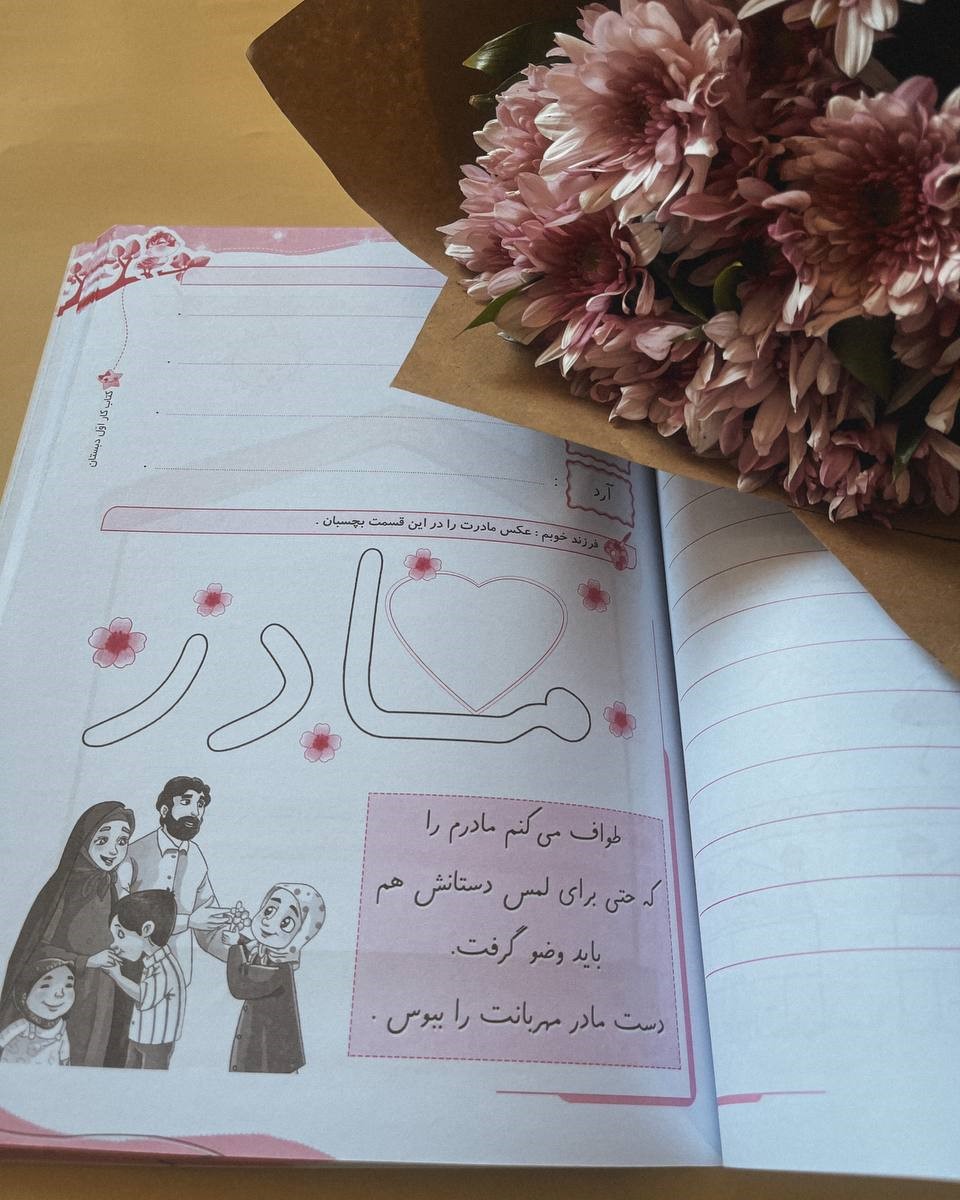 کتاب کار اوّل دبستان
آرد :
فرزند خوبم : عکس مادرت را در این قسمت بچسبان .
مادر
طواف می کنم مادرم را
که حتی برای لمس دستانش هم
باید وضو گرفت.
دست مادر مهربانت را ببوس .